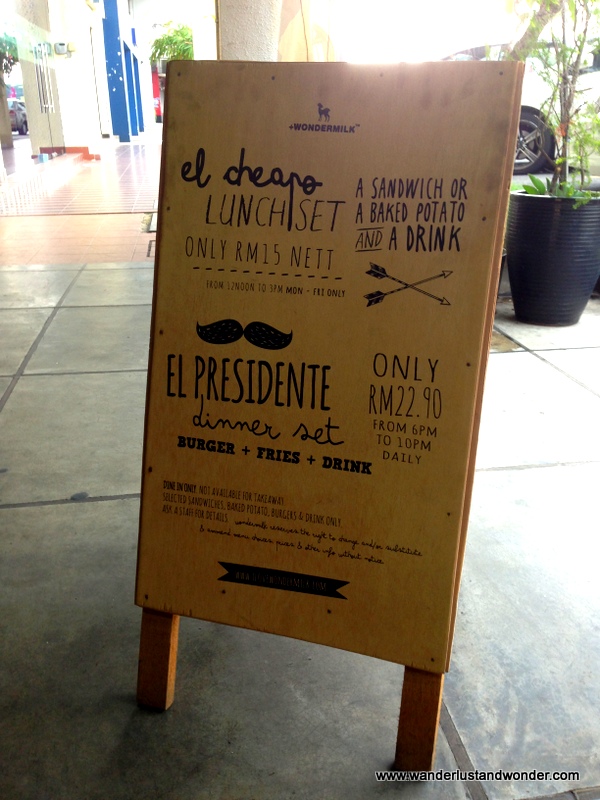 +WONDERMILK™
el cheapo
LUNCH SET
ONLY RM15 NETT
FROM 12NOON TO 3PM MON - FRI ONLY
A SANDWICH OR
A BAKED POTATO
AND A DRINK
EL PRESIDENTE
dinner set
BURGER + FRIES + DRINK
ONLY
RM22.90
FROM 6PM
TO 10PM
DAILY
DINE IN ONLY. NOT AVAILABLE FOR TAKEAWAY.
SELECTED SANDWICHES, BAKED POTATO, BURGERS & DRINK ONLY.
ASK A STAFF FOR DETAILS. wondermilk reserves the right to change and/or substitute
& amend menu choices, prices & other info without notice.
www.wanderlustandwonder.com